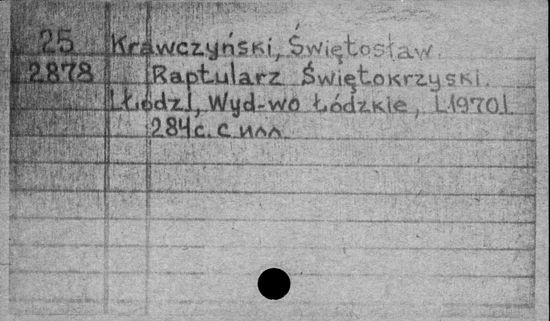 25 Krawczyński, Świętosław.
2878 Raptularz Świętokrzyski.
[Łódź], Wyd-wo Łódzkie, [1970].
284с. с илл.